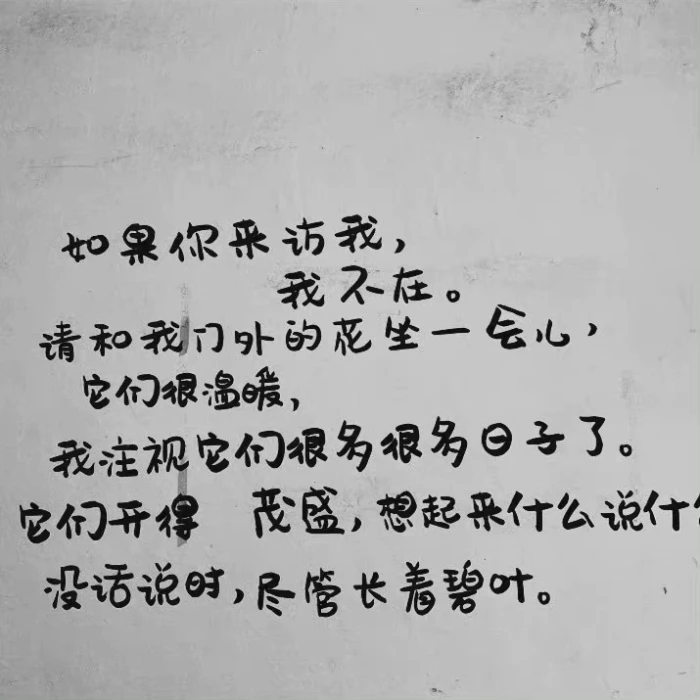 如果你来访我，
我不在。
请和我门外的花坐一会儿，
它们很温暖，
我注视它们很多很多日子了。
它们开得 茂盛，想起来什么说什
没话说时，尽管长着碧叶。